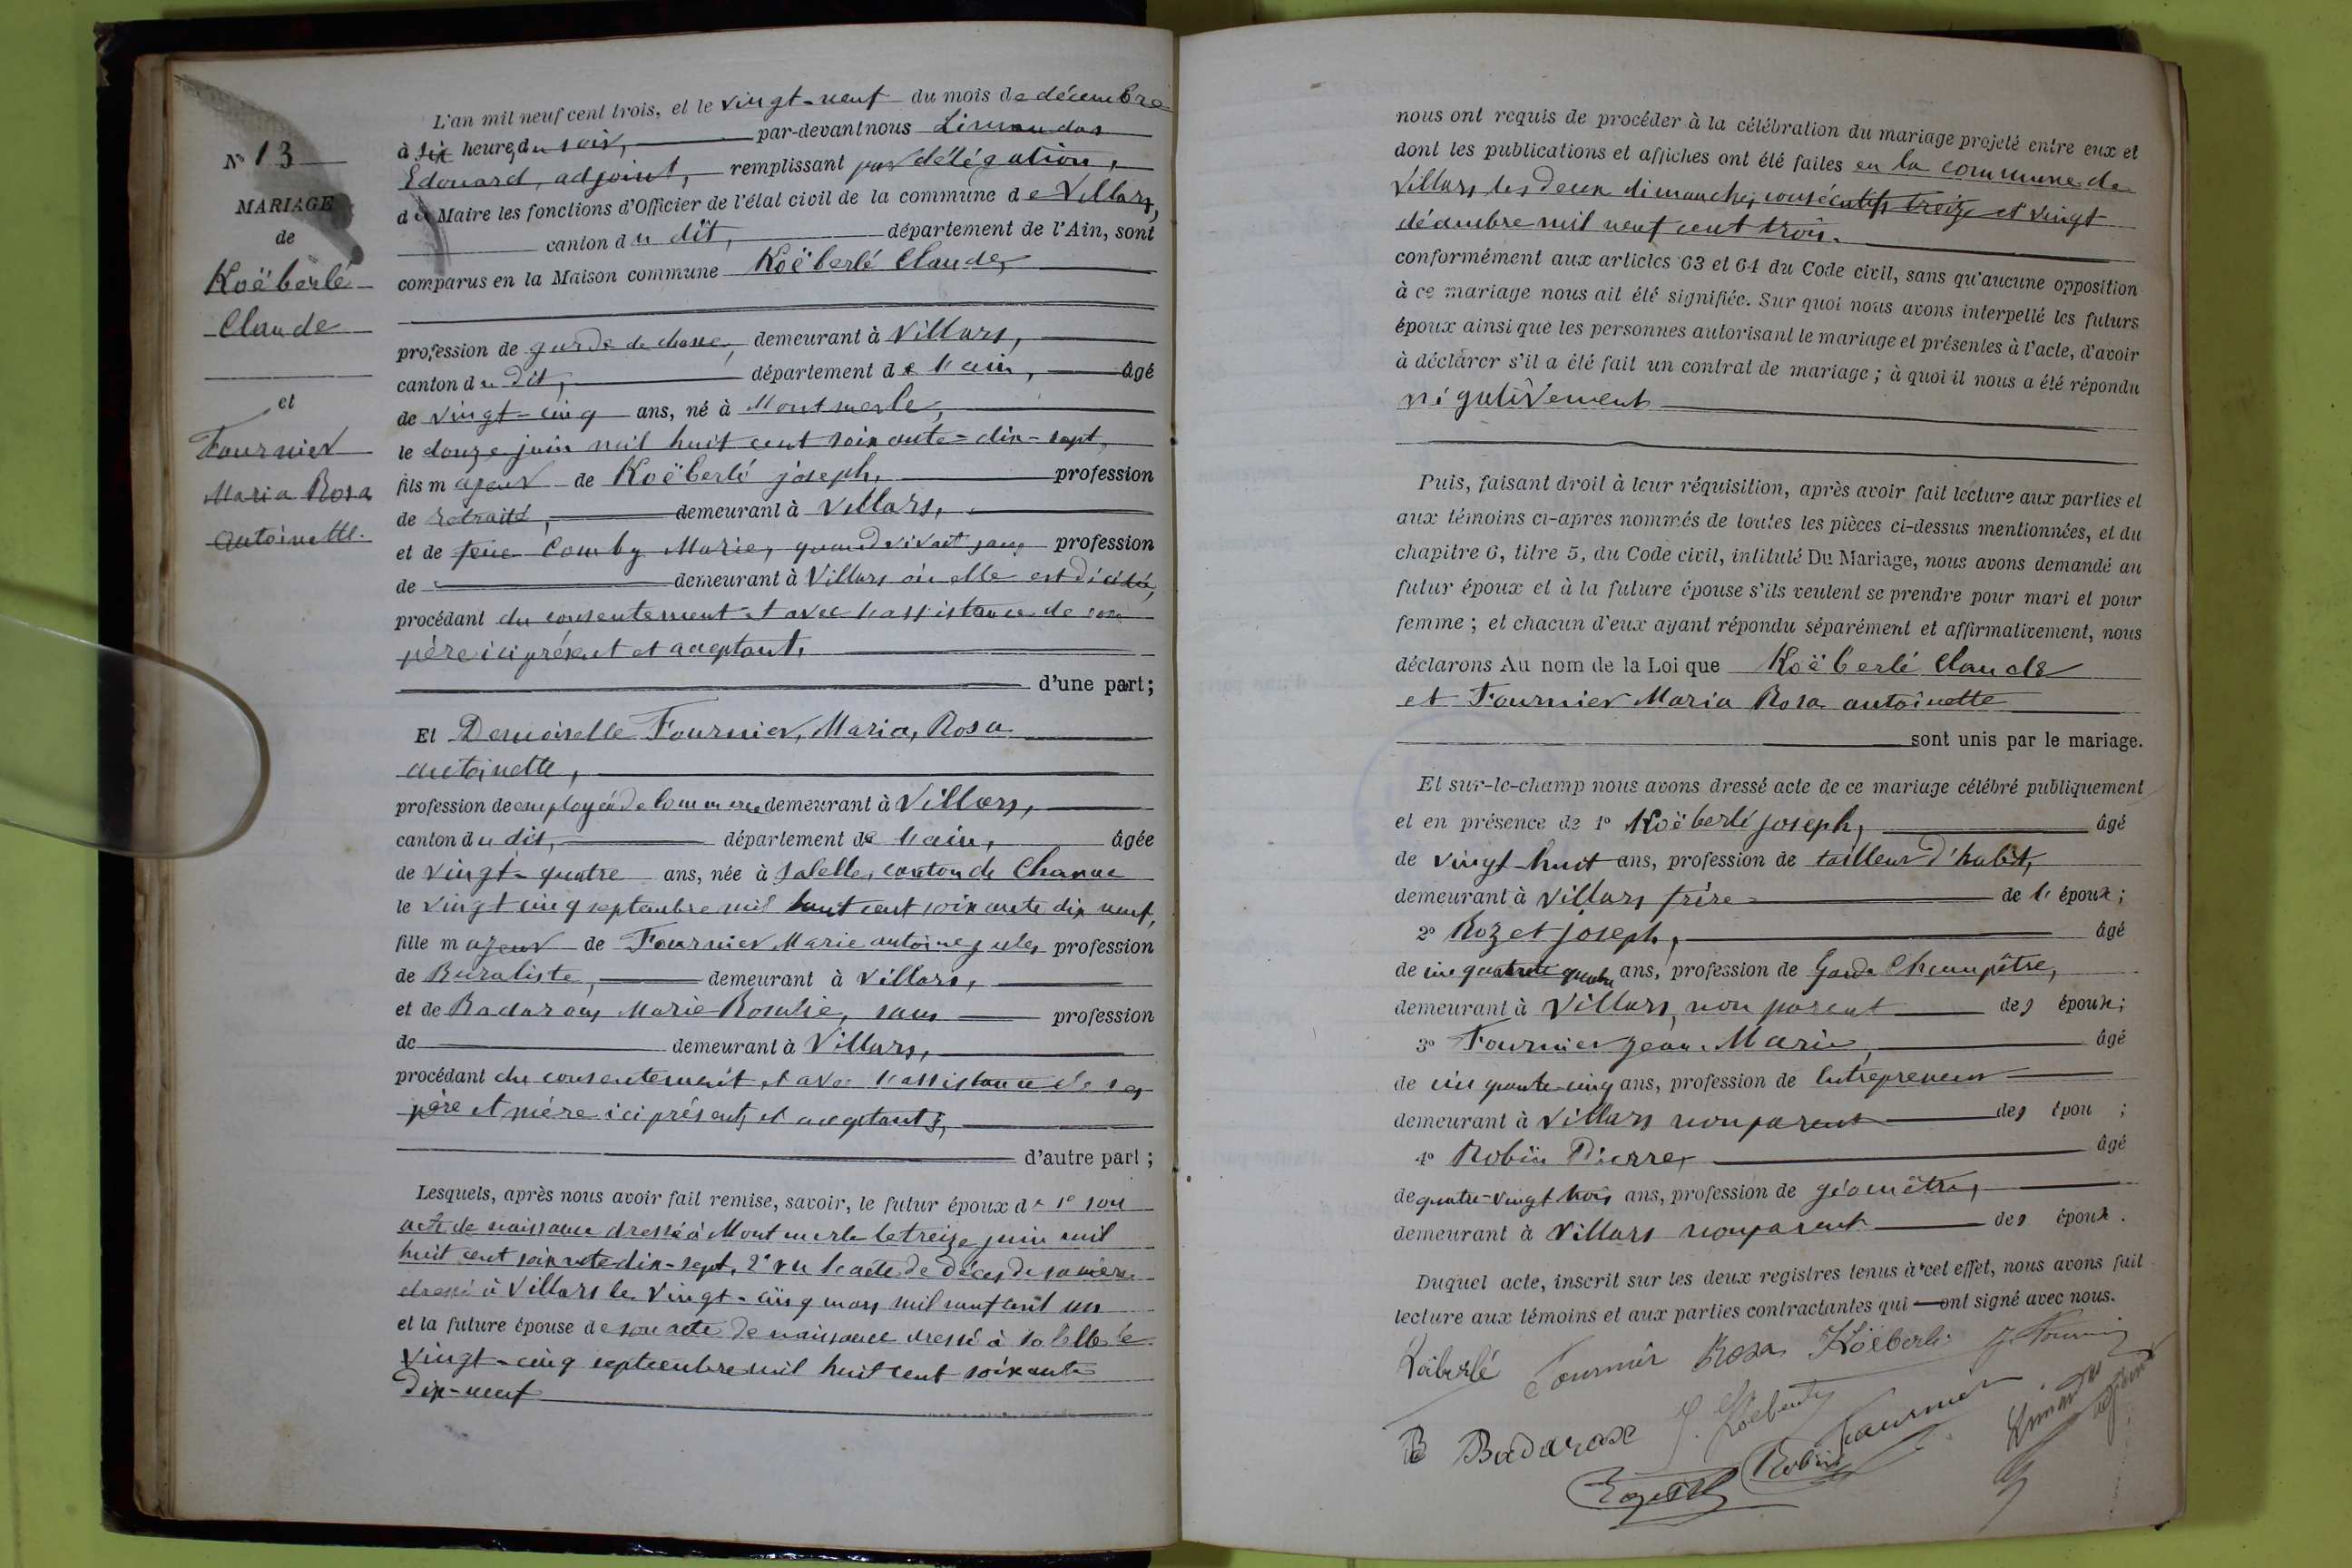 N° 13
MARIAGE
de
Koëberlé
Claude
et
Fournier
Maria Rosa
antoinette.
L'an mil neuf cent trois, et le vingt-neuf du mois de décembre
à six heures du soir, par-devant nous Limandas
Edouard, adjoint, remplissant par dellégation,
du Maire les fonctions d'Officier de l'état civil de la commune de Villars,
canton du dit, département de l'Ain, sont
comparus en la Maison commune Koëberlé Claude,
profession de garde de chasse, demeurant à Villars,
canton du dit, département de l'ain, âgé
de vingt-cinq ans, né à Montmerle,
le douze juin mil huit cent soixante-dix-sept,
fils majeur de Koëberlé joseph, profession
de retraité, demeurant à Villars,
et de feue Comby Marie, quand vivait sans profession
de demeurant à Villars où elle est décédée,
procédant du consentement et avec l'assistance de son
père ici présent et acceptant,
d'une part;
Et Demoiselle Fournier, Maria, Rosa
antoinette,
profession de employée de commerce demeurant à Villars,
canton du dit, département de l'ain, âgée
de vingt-quatre ans, née à Salelles, canton de Chanac
le vingt cinq septembre mil huit cent soixante dix neuf,
fille majeur de Fournier Marie antoine jules profession
de Buraliste, demeurant à Villars,
et de Badaroux Marie Rosalie, sans profession
de demeurant à Villars,
procédant du consentement et avec l'assistance de ses
père et mère ici présents et acceptants,
d'autre part;
Lesquels, après nous avoir fait remise, savoir, le futur époux de 1° son
acte de naissance dressé à Montmerle le treize juin mil
huit cent soixante dix-sept, 2° vu l'acte de décès de sa mère
dressé à Villars le vingt-cinq mars mil neuf cent un
et la future épouse de son acte de naissance dressé à Salelle le
vingt-cinq septembre mil huit cent soixante
dix-neuf
nous ont requis de procéder à la célébration du mariage projeté entre eux et
dont les publications et affiches ont été faites en la commune de
Villars les deux dimanches consécutifs treize et vingt
décembre mil neuf cent trois.
conformément aux articles 63 et 64 du Code civil, sans qu'aucune opposition
à ce mariage nous ait été signifiée. Sur quoi nous avons interpellé les futurs
époux ainsi que les personnes autorisant le mariage et présentes à l'acte, d'avoir
à déclarer s'il a été fait un contrat de mariage; à quoi il nous a été répondu
négativement
Puis, faisant droit à leur réquisition, après avoir fait lecture aux parties et
aux témoins ci-après nommés de toutes les pièces ci-dessus mentionnées, et du
chapitre 6, titre 5, du Code civil, intitulé Du Mariage, nous avons demandé au
futur époux et à la future épouse s'ils veulent se prendre pour mari et pour
femme; et chacun d'eux ayant répondu séparément et affirmativement, nous
déclarons Au nom de la Loi que Koëberlé Claude
et Fournier Maria Rosa antoinette
sont unis par le mariage.
Et sur-le-champ nous avons dressé acte de ce mariage célébré publiquement
et en présence de 1° Koëberlé joseph, âgé
de vingt-huit ans, profession de tailleur d'habit,
demeurant à Villars frère de l'époux;
2° Rozet joseph, âgé
de cinquante quatre ans, profession de Garde Champêtre,
demeurant à Villars, non parent des époux;
3° Fournier jean-Marie, âgé
de cinquante-cinq ans, profession de Entrepreneur
demeurant à Villars non parent des épou ;
4° Robin Pierre, âgé
de quatre-vingt trois ans, profession de géomètre,
demeurant à Villars non parent des époux.
Duquel acte, inscrit sur les deux registres tenus à cet effet, nous avons fait
lecture aux témoins et aux parties contractantes qui ont signé avec nous.
Koëberlé Fournier Rosa Köeberlé J. Fournier
B Badaroux J. Koeberlé Fournier Limandas adjoint
Rozet Robin